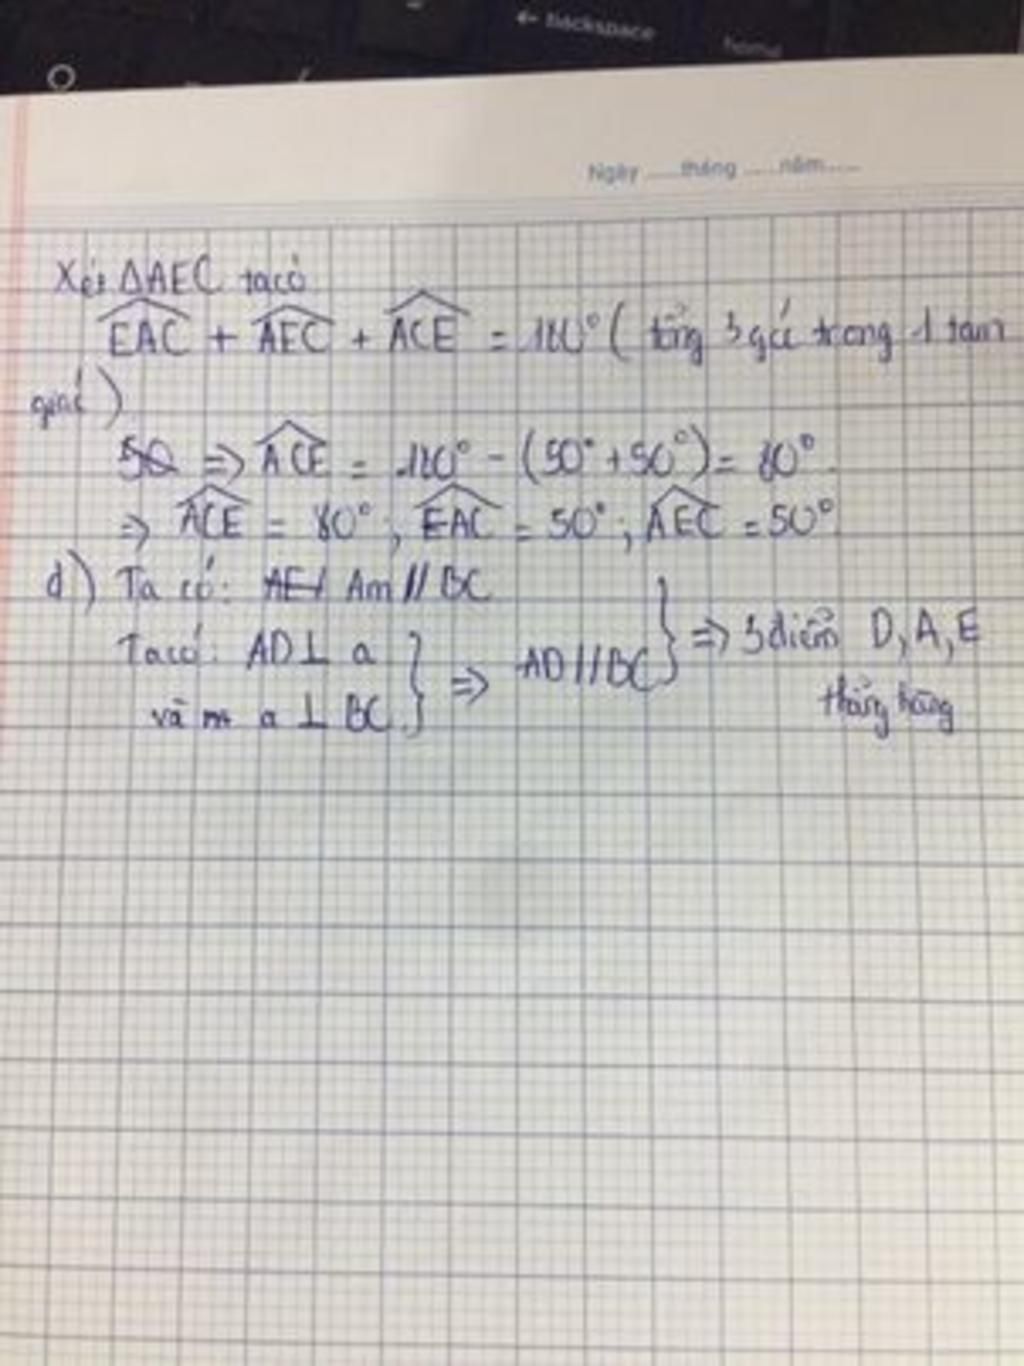 ← backspace
home
Ngày ......tháng ......năm......
Xét ΔAEC ta có
EAC + AEC + ACE = 180° ( tổng 3 góc trong 1 tam
giác )
50 => ACE = 180° - (50° + 50°) = 80°
=> ACE = 80° ; EAC = 50° ; AEC = 50°
d) Ta có: AE// Am // BC
Ta có: AD ⊥ a } => AD // BC } => 3 điểm D, A, E
và m a ⊥ BC thẳng hàng